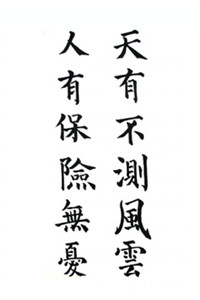 天有不測風雲
人有保險無憂